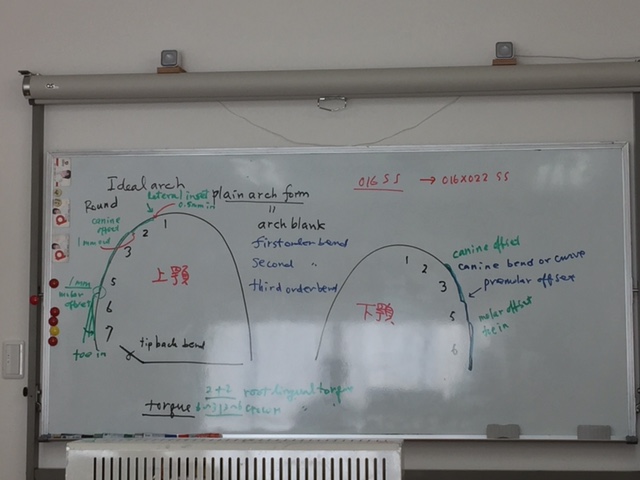 Ideal arch
Round
lateral inset
0.5mm in
plain arch form
"
arch blank
first order bend
second "
third order bend
016 SS → 016X022 SS
canine
1mm out
1
2
3
5
6
7
1mm
molar offset
toe in
上顎
tip back bend
torque
2+2 root lingual torque
crown "
1
2
3
5
6
下顎
canine offset
canine bend or curve
premolar offset
molar offset
toe in